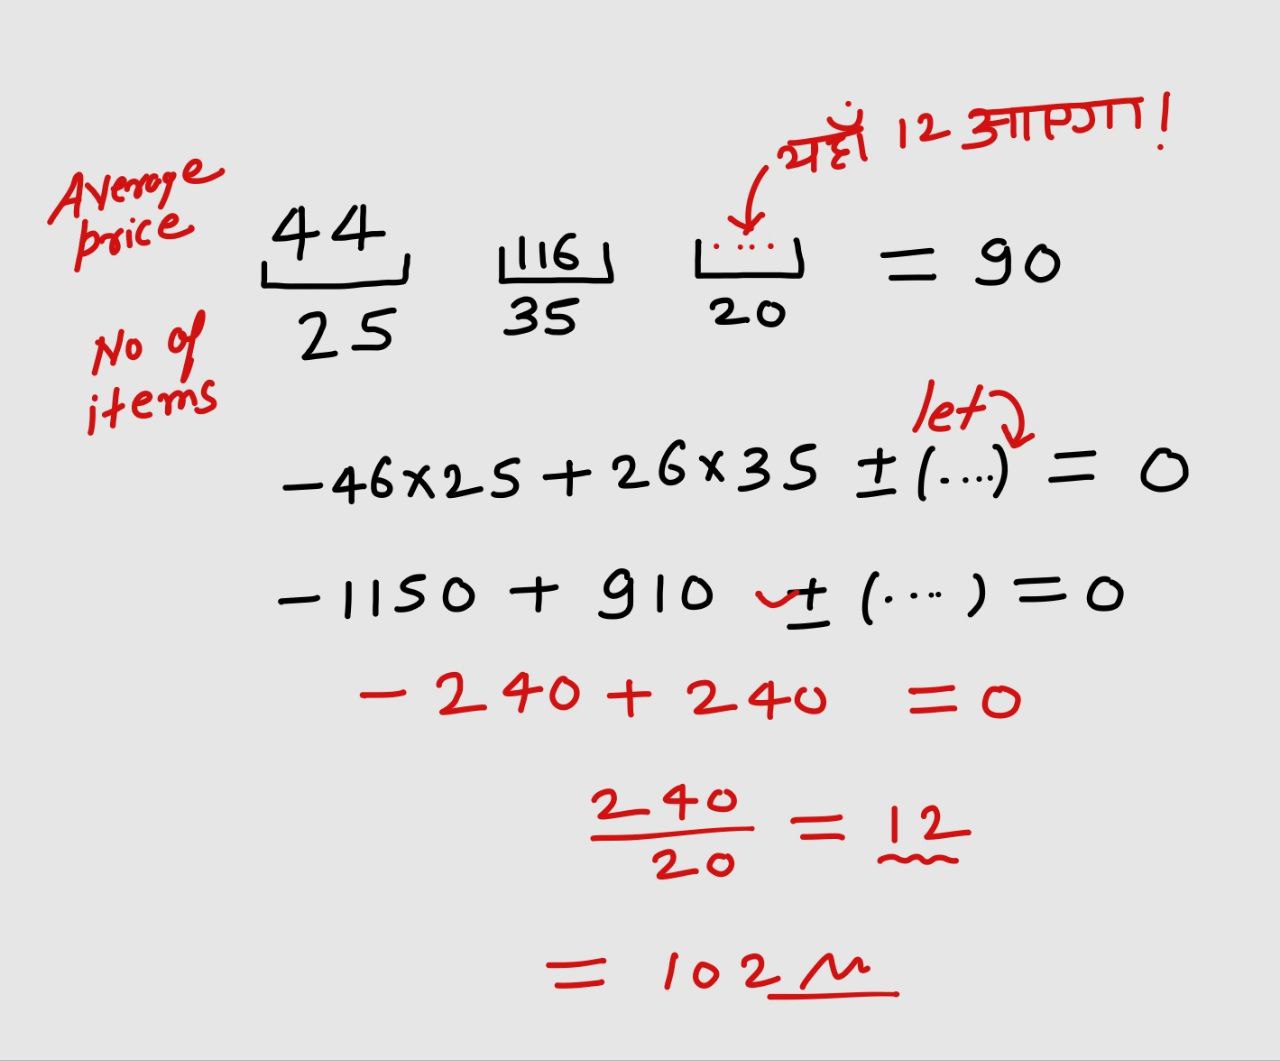 यहाँ 12 आएगा!
Average price
44 116 .... = 90
25 35 20
No of items
let
-46×25 + 26×35 ± (....) = 0
-1150 + 910 ± (....) = 0
-240 + 240 = 0
240/20 = 12
= 102